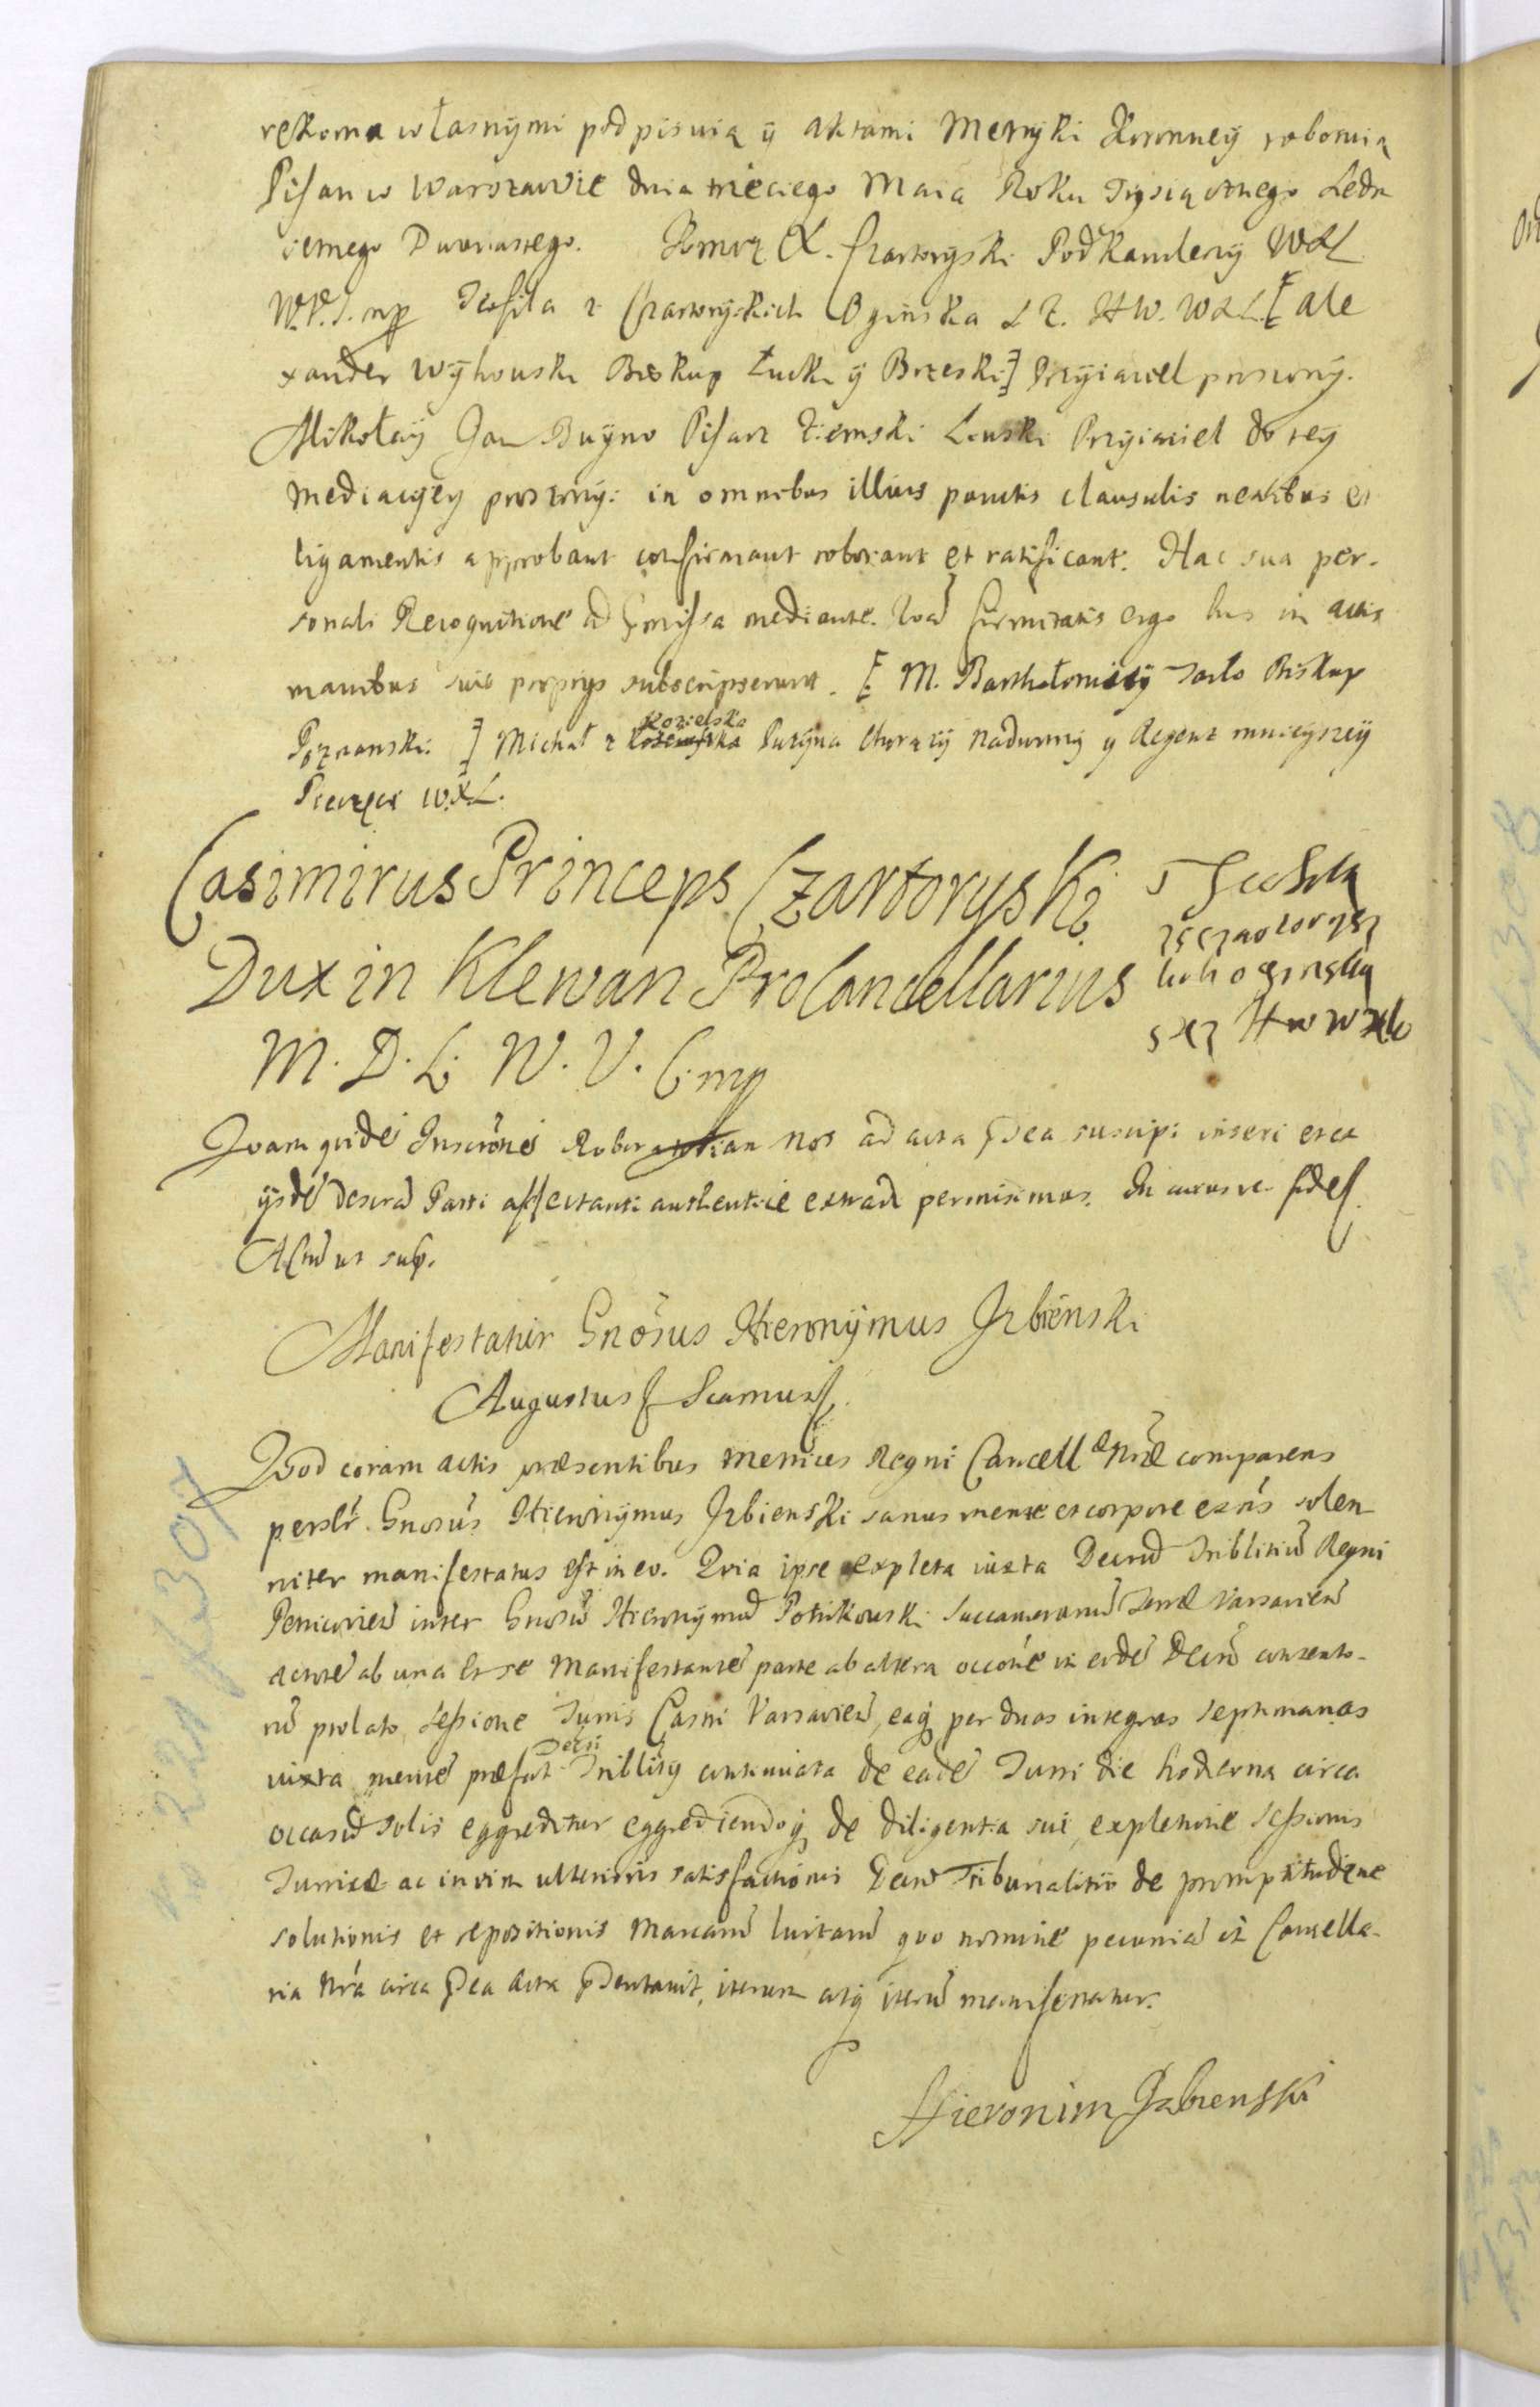 rękoma własnymi podpisuią ÿ aktami Metryki Koronneÿ roboruią
Pisan w Warszawie dnia trzeciego Maia Roku Tysiącznego Sedm
setnego Dwunastego. Kmrz X. Czartoryski Podkanclerzÿ WXL
W.P.S. mp Teofila z Czartoryskich Oginska S Z. HW. WXL [Ale
xander Wÿhouski Biskup Łucki ÿ Brzeski] Przyiaciel proszonÿ.
Mikołaÿ Jan Buÿno Pisarz Ziemski Łucki Przyiaciel do teÿ
mediacÿeÿ proszonÿ: in omnibus illius punctis clausulis nexibus et
ligamentis approbant confirmant roborant et ratificant. Hac sua per-
sonali Recognitione ad præmissa mediante. Quod firmitatis ergo hic in actis
manibus suis proprÿs subscripserunt. [M. Bartholomieÿ Tarło Biskup
Poznanski] Michał z Kozielska Puzyna Chorąży nadworny y Regent mnieÿszeÿ
Pieczęci W.X.L.
Casimirus Princeps Czartoryski
Dux in Klewan ProCancellarius
M. D. L. W. V. C. mp
T Teofila
z Czartorys
kich oginska
S X Z H W W X L
Quam quidem Inscrõnem Roborãõem nos ad acta præsentia suscipi inseri et ex
ÿsdem descr Parti affectanti authentice extradi permisimus. In cuius rei fidem
Actum ut supra
Manifestatur Gnõsus Hieronÿmus Jzbienski
Augustus S Scamus
Quod coram actis præsentibus Metrices Regni Cancellæ Nræ comparens
perslr. Gnosus Hieronÿmus Jzbienski sanus mente et corpore exñs solen
niter manifestatus est in eo. Quia ipse expleta iuxta Decretũ Triblitiũ Regni
Petricovien inter Gnosũ Hieronÿmũ Potrikowski Succamerariũ Terræ Varsavien
actorẽ ab una et se Manifestantẽ parte ab altera occõne in eodẽ Decrõ contento-
rũ prolato, sessione Turris Castri Varsavien, eaq per duas integras septimanas
iuxta mentẽ præfati Decrti Triblitÿ continuata de eadẽ Turri die hodierna circa
occasũ solis eggreditur eggrediendoq de diligentia sui expletione sessionis
Turricæ ac in vim ulterioris satisfactionis Decrto Tribunalitio de promptitudine
solutionis et repositionis Marcarũ luitarũ quo nomine pecuniã in Cancella-
ria Nra circa præsentia Acta præsentavit, iterum atq iterũ manifestatur.
Hieronim Jzbienski
No 221 f 307